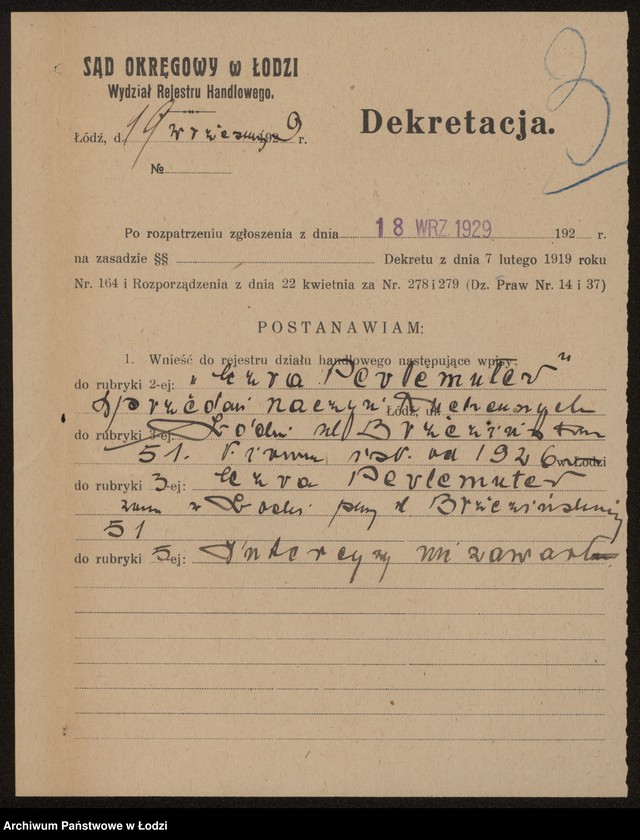 SĄD OKRĘGOWY w ŁODZI
Wydział Rejestru Handlowego.
3
Łódź, d. 19 września 1929 r.
Dekretacja.
№
Po rozpatrzeniu zgłoszenia z dnia 18 WRZ. 1929 192 r.
na zasadzie §§ Dekretu z dnia 7 lutego 1919 roku
Nr. 164 i Rozporządzenia z dnia 22 kwietnia za Nr. 278 i 279 (Dz. Praw Nr. 14 i 37)
POSTANAWIAM:
1. Wnieść do rejestru działu handlowego następujące wpisy:
do rubryki 2-ej: "Perlemuter"
Sprzedaż naczyń kuchennych Łódź, ul
do rubryki 3-ej: Łódź ul Brzezińska
51. Firma istn. od 1926 w Łodzi
do rubryki 3-ej: Perlemuter
zam w Łodzi przy ul Brzezińskiej
51
do rubryki 5-ej: Intercyzy nie zawarł
Archiwum Państwowe w Łodzi